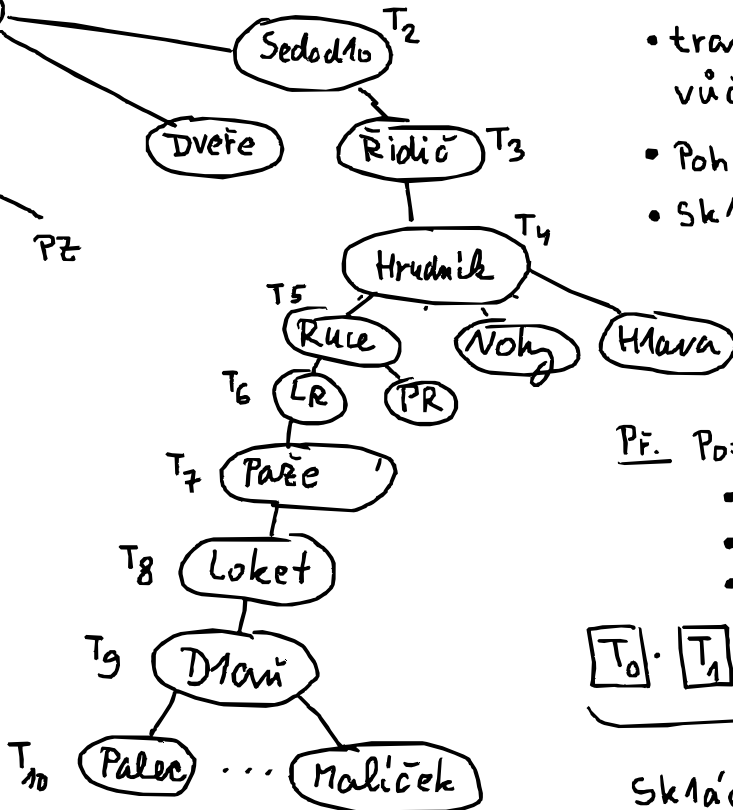 T2
Sedadlo
• tra
vůč
Dveře
Řidič T3
• Poh
• Skl
PZ
T4
Hrudník
T5
Ruce
Nohy
Hlava
T6
LR
PR
Př. Po
T7
Paže
T8
Loket
T9
Dlaň
T0 · T1
T10
Palec ... Malíček
Sklá